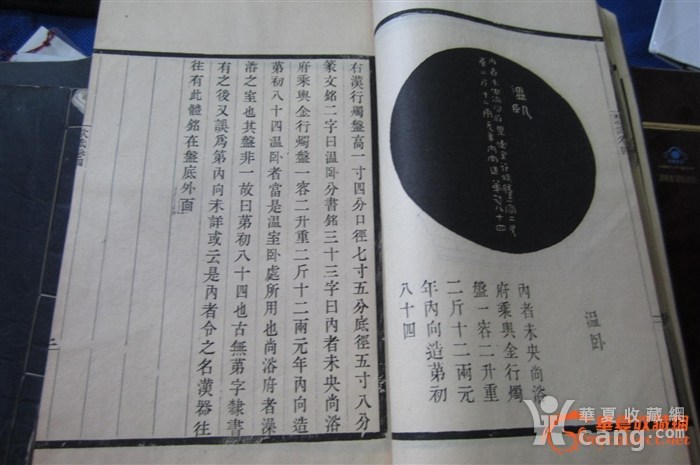 溫卧
溫卧
內者未央尚浴
府乘輿金行燭
盤一容二升重
二斤十二兩元
年內向造第初
八十四
右漢行燭盤高一寸四分口徑七寸五分底徑五寸八分
篆文銘二字曰溫卧分書銘三十三字曰內者未央尚浴
府乘輿金行燭盤一容二升重二斤十二兩元年內向造
第初八十四溫卧者當是溫室卧處所用也尚浴府者澡
潘之室也其盤非一故曰第初八十四也古無第字隸書
有之後又誤爲第內向未詳或云是內者令之名漢器往
往有此體銘在盤底外面
華夏收藏網
cang.com